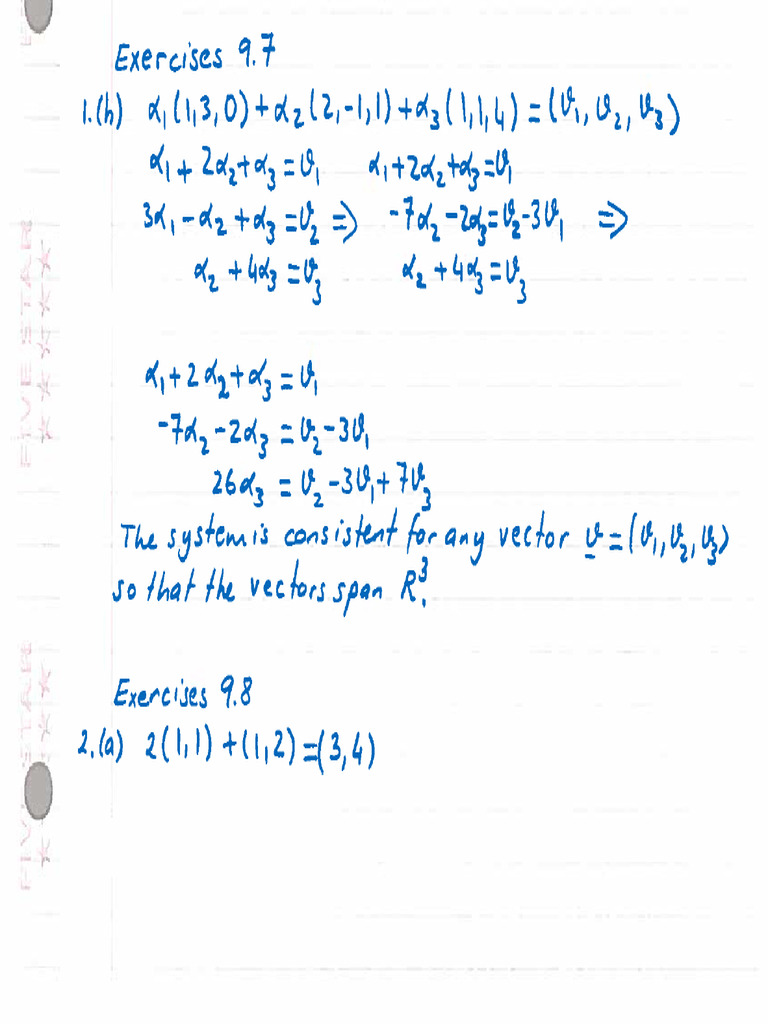 Exercises 9.7
1.(h) α₁(1,3,0)+α₂(2,-1,1)+α₃(1,1,4)=(v₁,v₂,v₃)
α₁+2α₂+α₃=v₁ α₁+2α₂+α₃=v₁
3α₁-α₂+α₃=v₂ ⇒ -7α₂-2α₃=v₂-3v₁ ⇒
α₂+4α₃=v₃ α₂+4α₃=v₃
α₁+2α₂+α₃=v₁
-7α₂-2α₃=v₂-3v₁
26α₃=v₂-3v₁+7v₃
The system is consistent for any vector v=(v₁,v₂,v₃)
so that the vectors span R³.
Exercises 9.8
2.(a) 2(1,1)+(1,2)=(3,4)
FIVE STAR
FIVE STAR